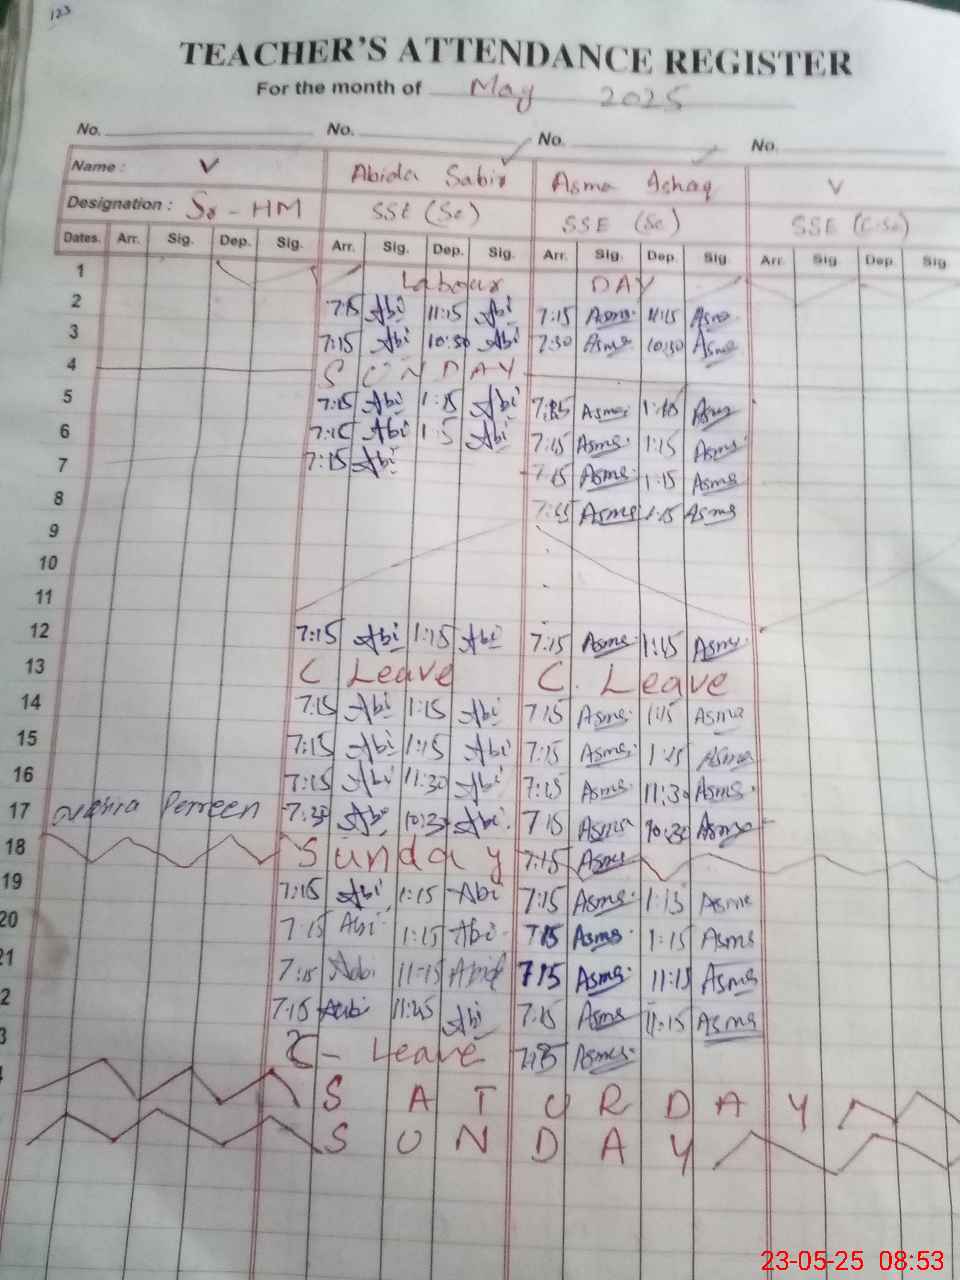 123
TEACHER'S ATTENDANCE REGISTER
For the month of May 2025
No. No. No. No.
Name : V Abida Sabir Asma Ashaq V
Designation : Sr - HM SSE (Sc) SSE (Sc) SSE (C.Sc)
Dates. Arr. Sig. Dep. Sig. Arr. Sig. Dep. Sig. Arr. Sig. Dep. Sig. Arr. Sig Dep. Sig
1 Labour DAY
2 7:15 Abi 11:15 Abi 7:15 Asma 11:15 Asma
3 7:15 Abi 10:30 Abi 7:30 Asma 10:30 Asma
4 SUNDAY
5 7:15 Abi 1:15 Abi 7:15 Asma 1:15 Asma
6 7:15 Abi 1:15 Abi 7:15 Asma 1:15 Asma
7 7:15 Abi 7:15 Asma 1:15 Asma
8 7:15 Asma 1:15 Asma
9
10
11
12 7:15 Abi 1:15 Abi 7:15 Asma 1:15 Asma
13 C Leave C. Leave
14 7:15 Abi 1:15 Abi 7:15 Asma 1:15 Asma
15 7:15 Abi 1:15 Abi 7:15 Asma 1:15 Asma
16 7:15 Abi 11:30 Abi 7:15 Asma 11:30 Asma
17 Perreen 7:30 Abi 10:30 Abi 7:15 Asma 10:30 Asma
18 Sunday 7:15 Asma
19 7:15 Abi 1:15 Abi 7:15 Asma 1:15 Asma
20 7:15 Abi 1:15 Abi 7:15 Asma 1:15 Asma
21 7:15 Abi 11:15 Abid 7:15 Asma 11:15 Asma
2 7:15 Abi 11:15 Abi 7:15 Asma 11:15 Asma
3 C - Leave 7:15 Asma
SATURDAY
SUNDAY
23-05-25 08:53